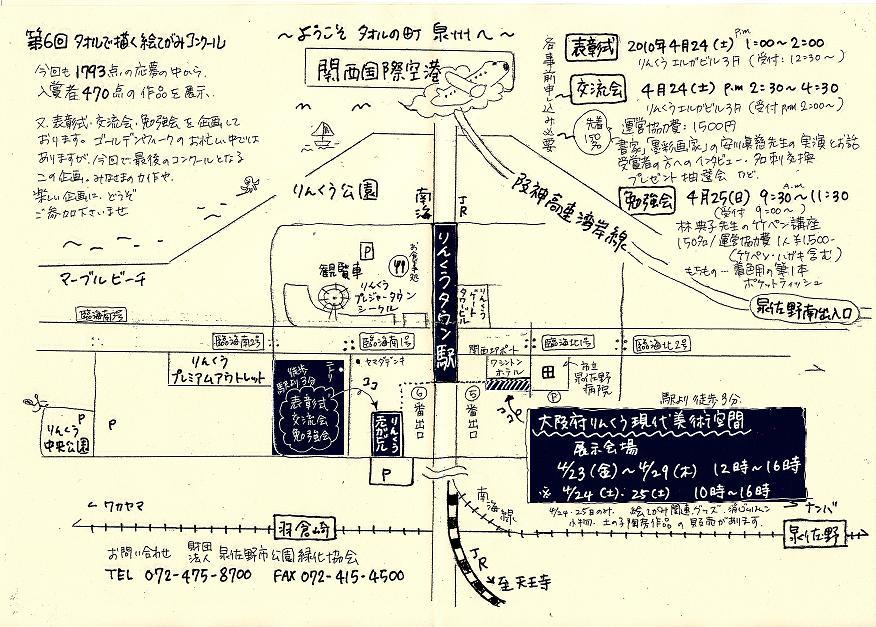 第6回 タオルで描く絵てがみコンクール
今回も1793点の応募の中から、
入賞者470点の作品を展示。
又、表彰式・交流会・勉強会を企画して
おります。ゴールデンウィークのお忙しい中では
ありますが、今回で最後のコンクールとなる
この企画。みなさまの力作や、
楽しい企画に、どうぞ
ご参加下さいませ
～ようこそ タオルの町 泉州へ～
関西国際空港
各事前申し込み必要
表彰式 2010年4月24(土) P.m 1:00～2:00
りんくうエルガビル3F (受付:12:30～)
交流会 4月24(土) P.m 2:30～4:30
りんくうエルガビル3F (受付 P.m 2:00～)
先着150名
運営協力費:1500円
書家「墨彩画家」の安川眞慈先生の実演とお話
受賞者の方へのインタビュー・名刺交換
プレゼント抽選会 など.
勉強会 4月25(日) A.m 9:30～11:30
(受付 9:00～)
林典子先生の竹ペン講座
150名/運営協力費1人¥1,500-
(竹ペン・ハガキ含む)
もちもの…着色用の筆1本
ポケットティッシュ
りんくう公園
南海
JR
阪神高速湾岸線
泉佐野南出入口
マーブルビーチ
P
観覧車
お食事処
りんくう
プレジャータウン
シークル
りんくうタウン駅
りんくう
ゲート
タワービル
臨海南3号
臨海南2号
臨海南1号
臨海北1号
臨海北2号
関西エアポート
ワシントン
ホテル
市立
泉佐野
病院
りんくう
プレミアムアウトレット
ニトリ
ヤマダデンキ
徒歩
駅より3分
表彰式
交流会
勉強会
ココ
りんくう
エルガビル
P
⑥番出口
⑤番出口
ココ
P
P
りんくう
中央公園
P
駅より徒歩3分
大阪府りんくう現代美術空間
展示会場
4/23(金)～4/29(木) 12時～16時
※ 4/24(土)・25(土) 10時～16時
4/24・25日のみ、絵てがみ関連グッズ・消しゴムハン
小物・土の子陶房作品の販売があります.
ワカヤマ
羽倉崎
南海線
ナンバ
泉佐野
JR
至天王寺
お問い合わせ 財団法人 泉佐野市公園緑化協会
TEL 072-475-8700 FAX 072-415-4500